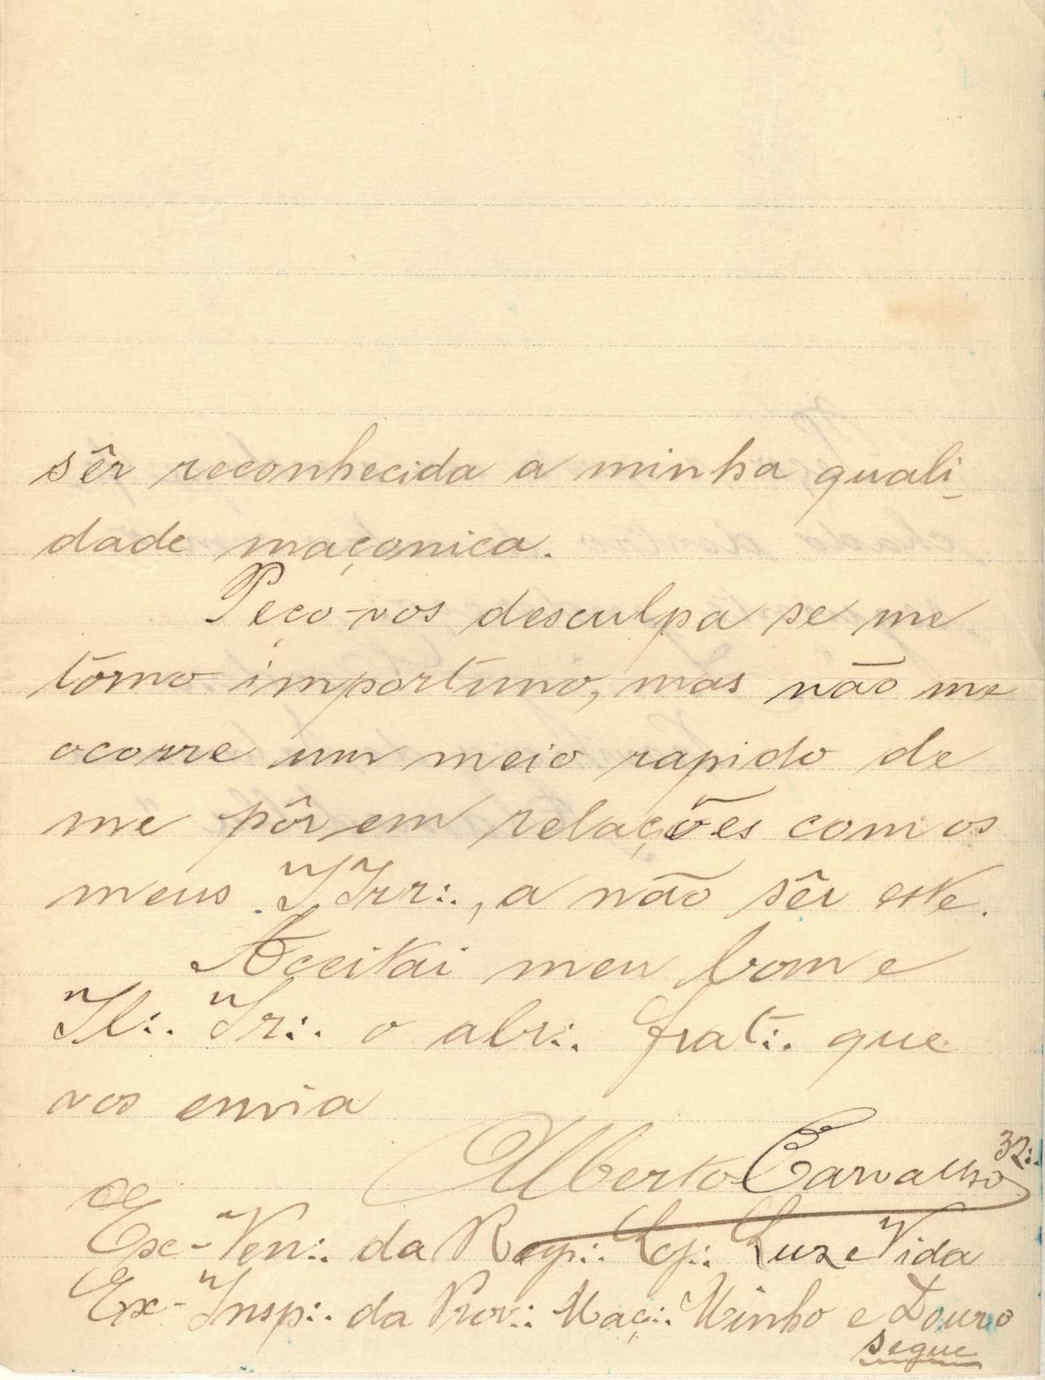 sêr reconhecida a minha quali-
dade maçonica.
Peço-vos desculpa se me
tórno importuno, mas não me
ocorre um meio rapido de
me pôr em relações com os
meus IIrr∴, a não sêr este.
Aceitai meu bom e
Il∴ Ir∴ o abr∴ frat∴ que
vos envia
Alberto Carvalho 32∴
Ex-Ven∴ da Resp∴ Loj∴ Luz e Vida
Ex-Insp∴ da Prov∴ Maç∴ Minho e Douro
segue